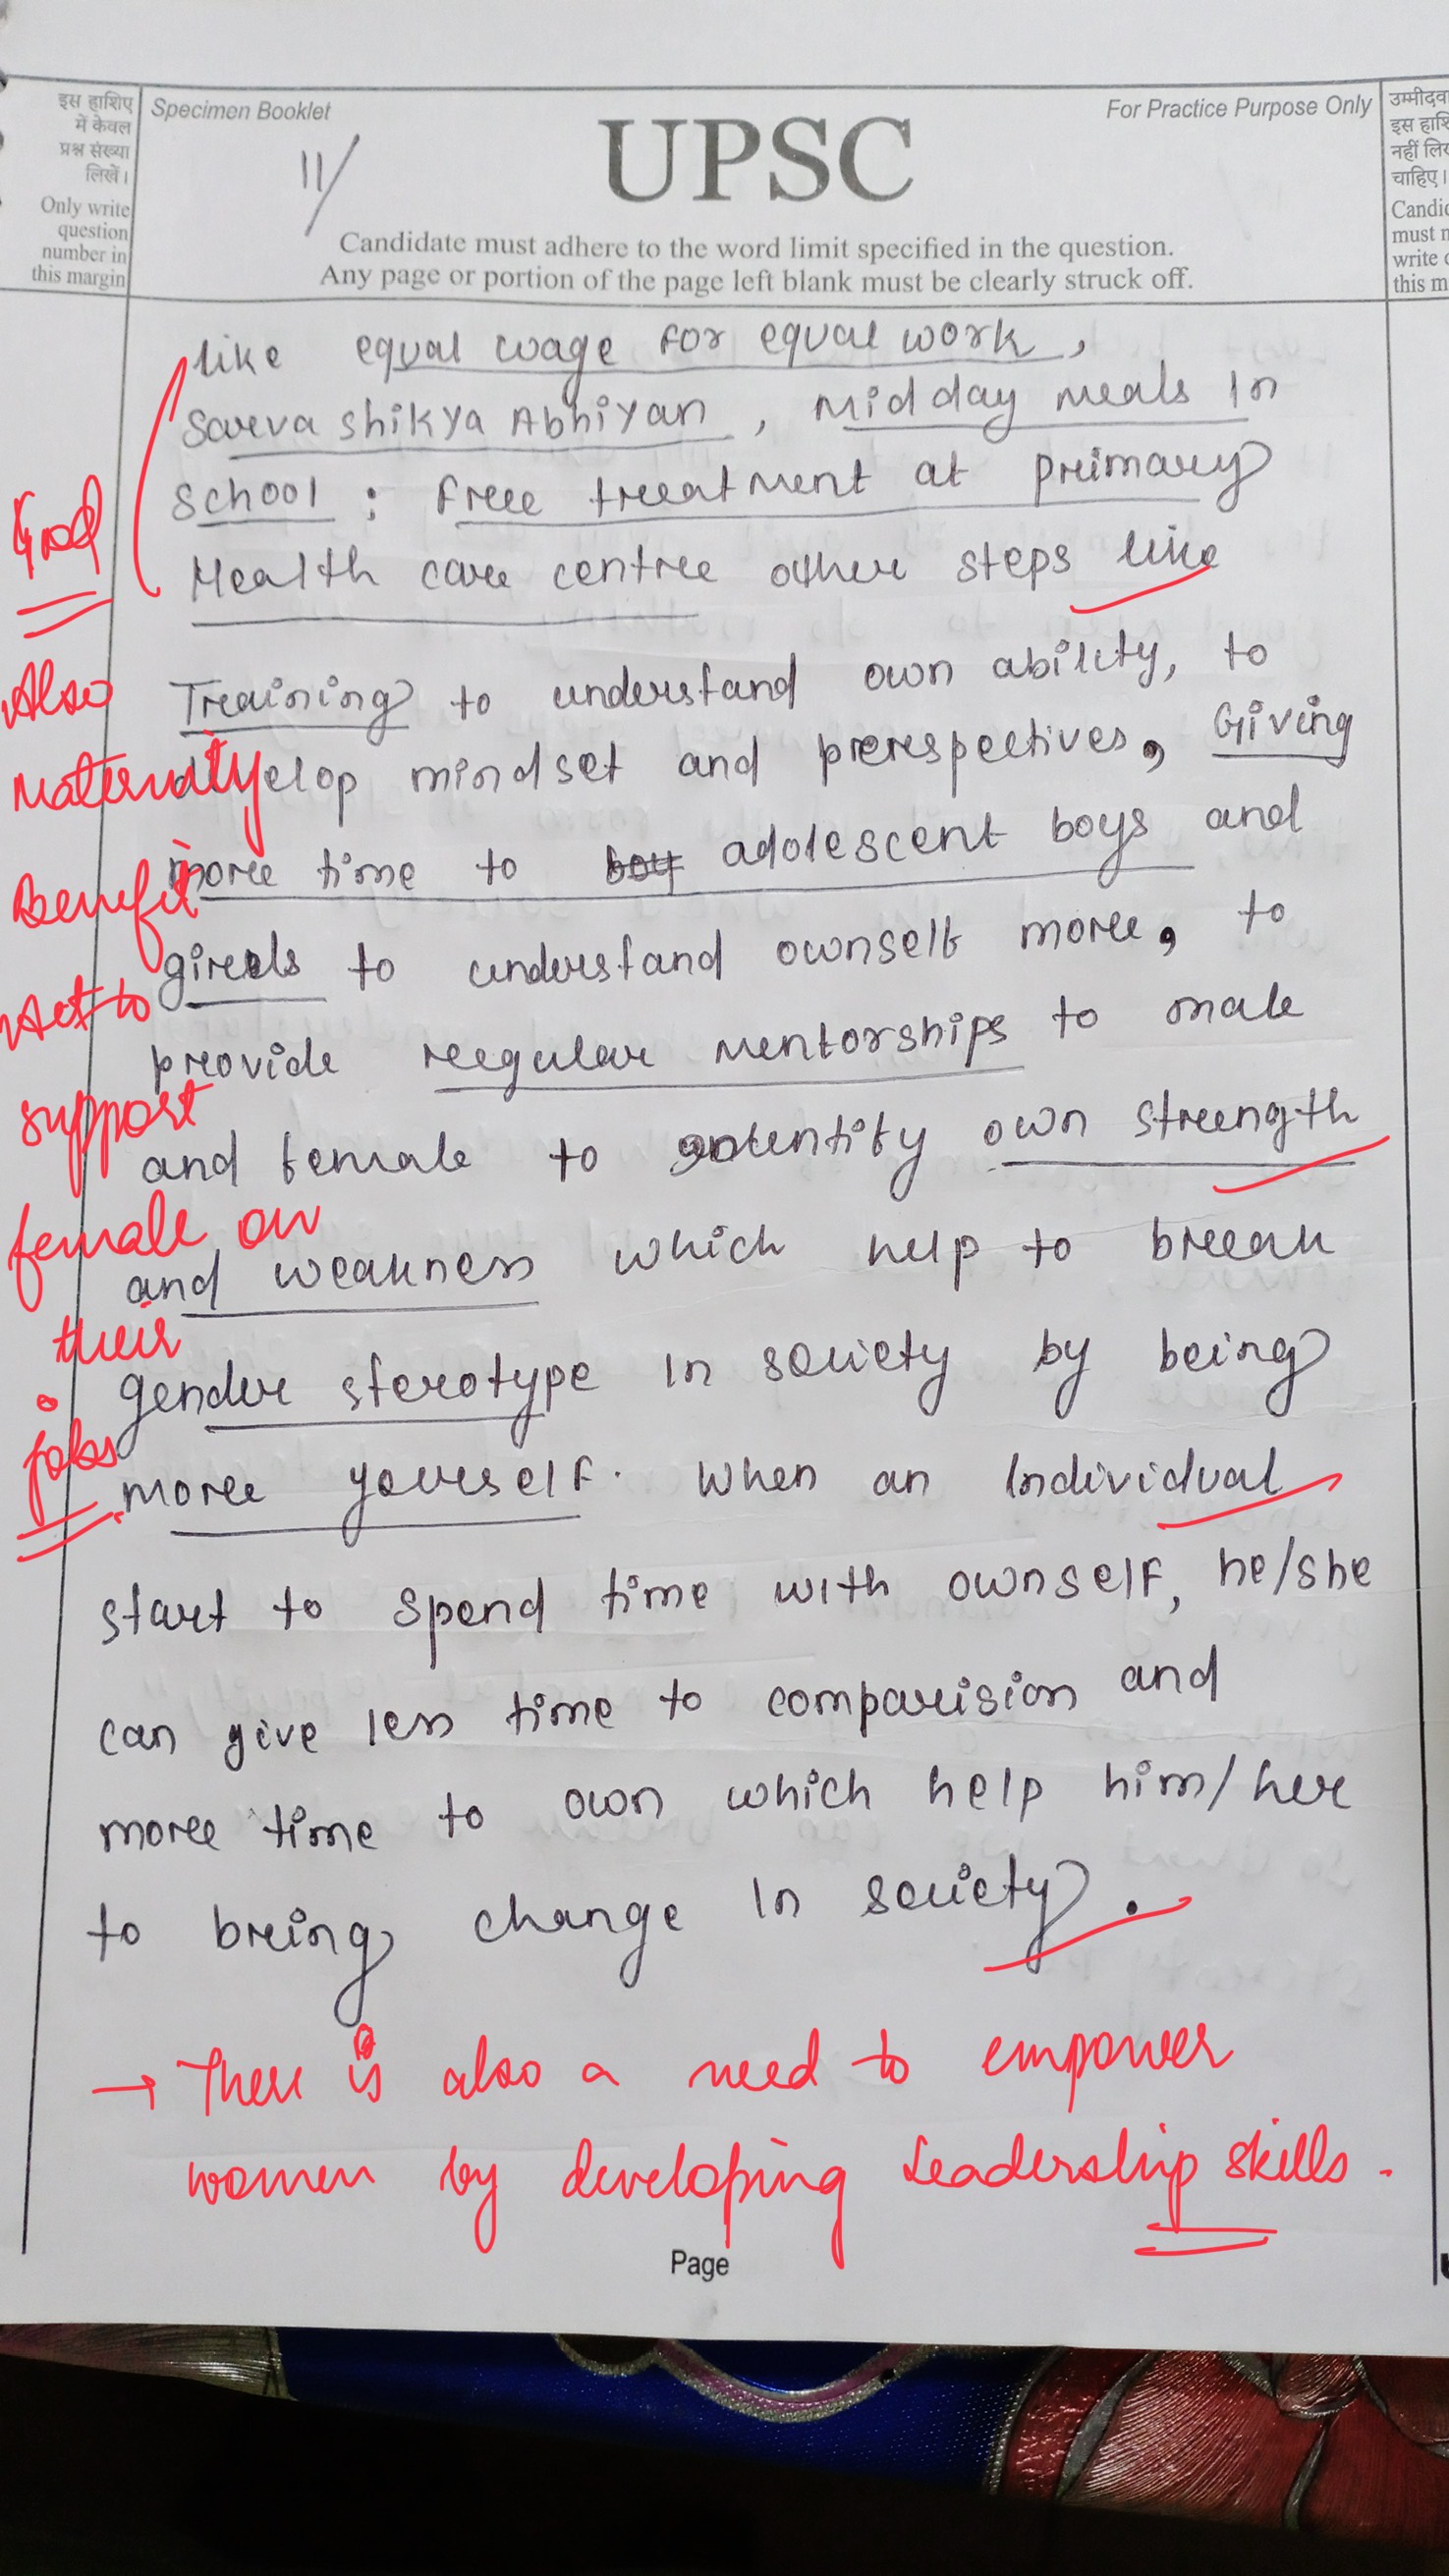 इस हाशिए
में केवल
प्रश्न संख्या
लिखें।
Only write
question
number in
this margin
Specimen Booklet
11/
UPSC
For Practice Purpose Only
Candidate must adhere to the word limit specified in the question.
Any page or portion of the page left blank must be clearly struck off.
उम्मीदवा
इस हाशि
नहीं लिख
चाहिए।
Candid
must n
write o
this m
like equal wage for equal work,
Sarva shikya Abhiyan, Mid day meals in
school; free treatment at primary
Health care centre other steps like
Training to understand own ability, to
develop mindset and prerespectives, Giving
more time to boy adolescent boys and
girls to understand ownself more, to
provide regular mentorships to male
and female to identify own strength
and weakness which help to break
gender sterotype in society by being
more yourself. When an Individual
start to spend time with ownself, he/she
can give less time to comparision and
more time to own which help him/her
to bring change in society.
Good
Also
Maternity
Benefit
Act to
support
female on
their
jobs.
→ There is also a need to empower
women by developing Leadership skills.
Page